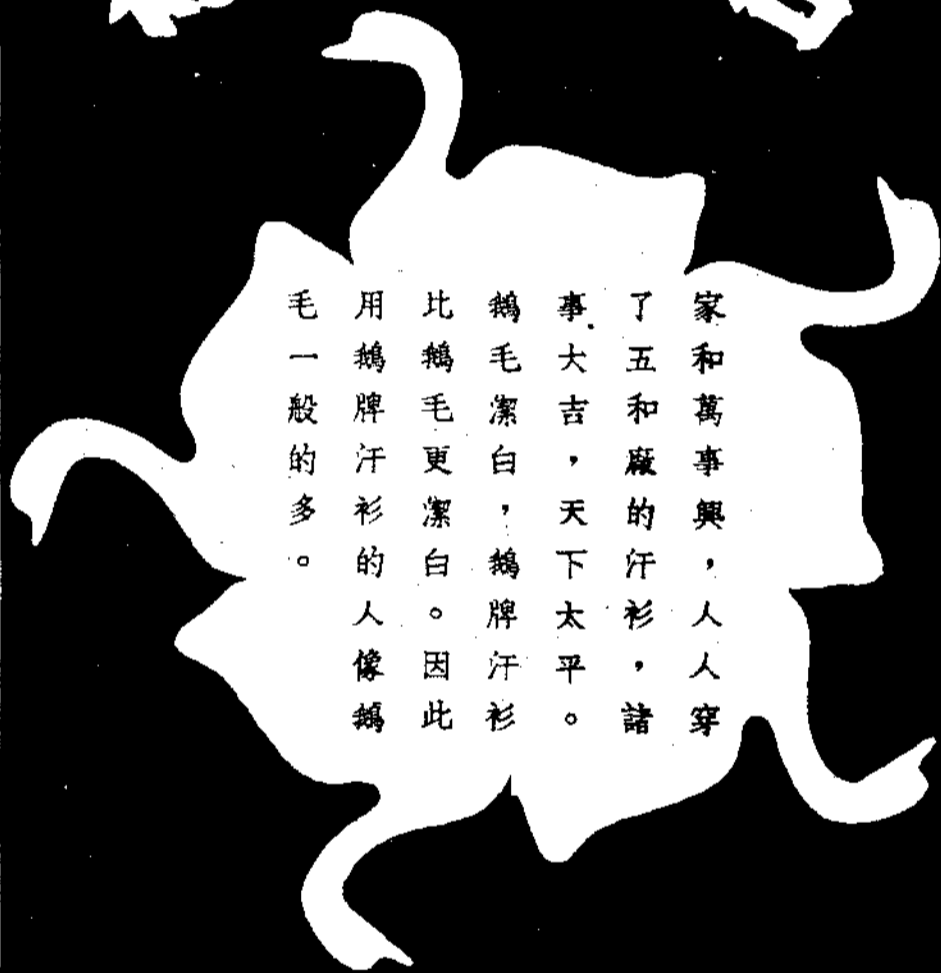 家和萬事興，人人穿
了五和廠的汗衫，諸
事大吉，天下太平。
鵝毛潔白，鵝牌汗衫
比鵝毛更潔白。因此
用鵝牌汗衫的人像鵝
毛一般的多。